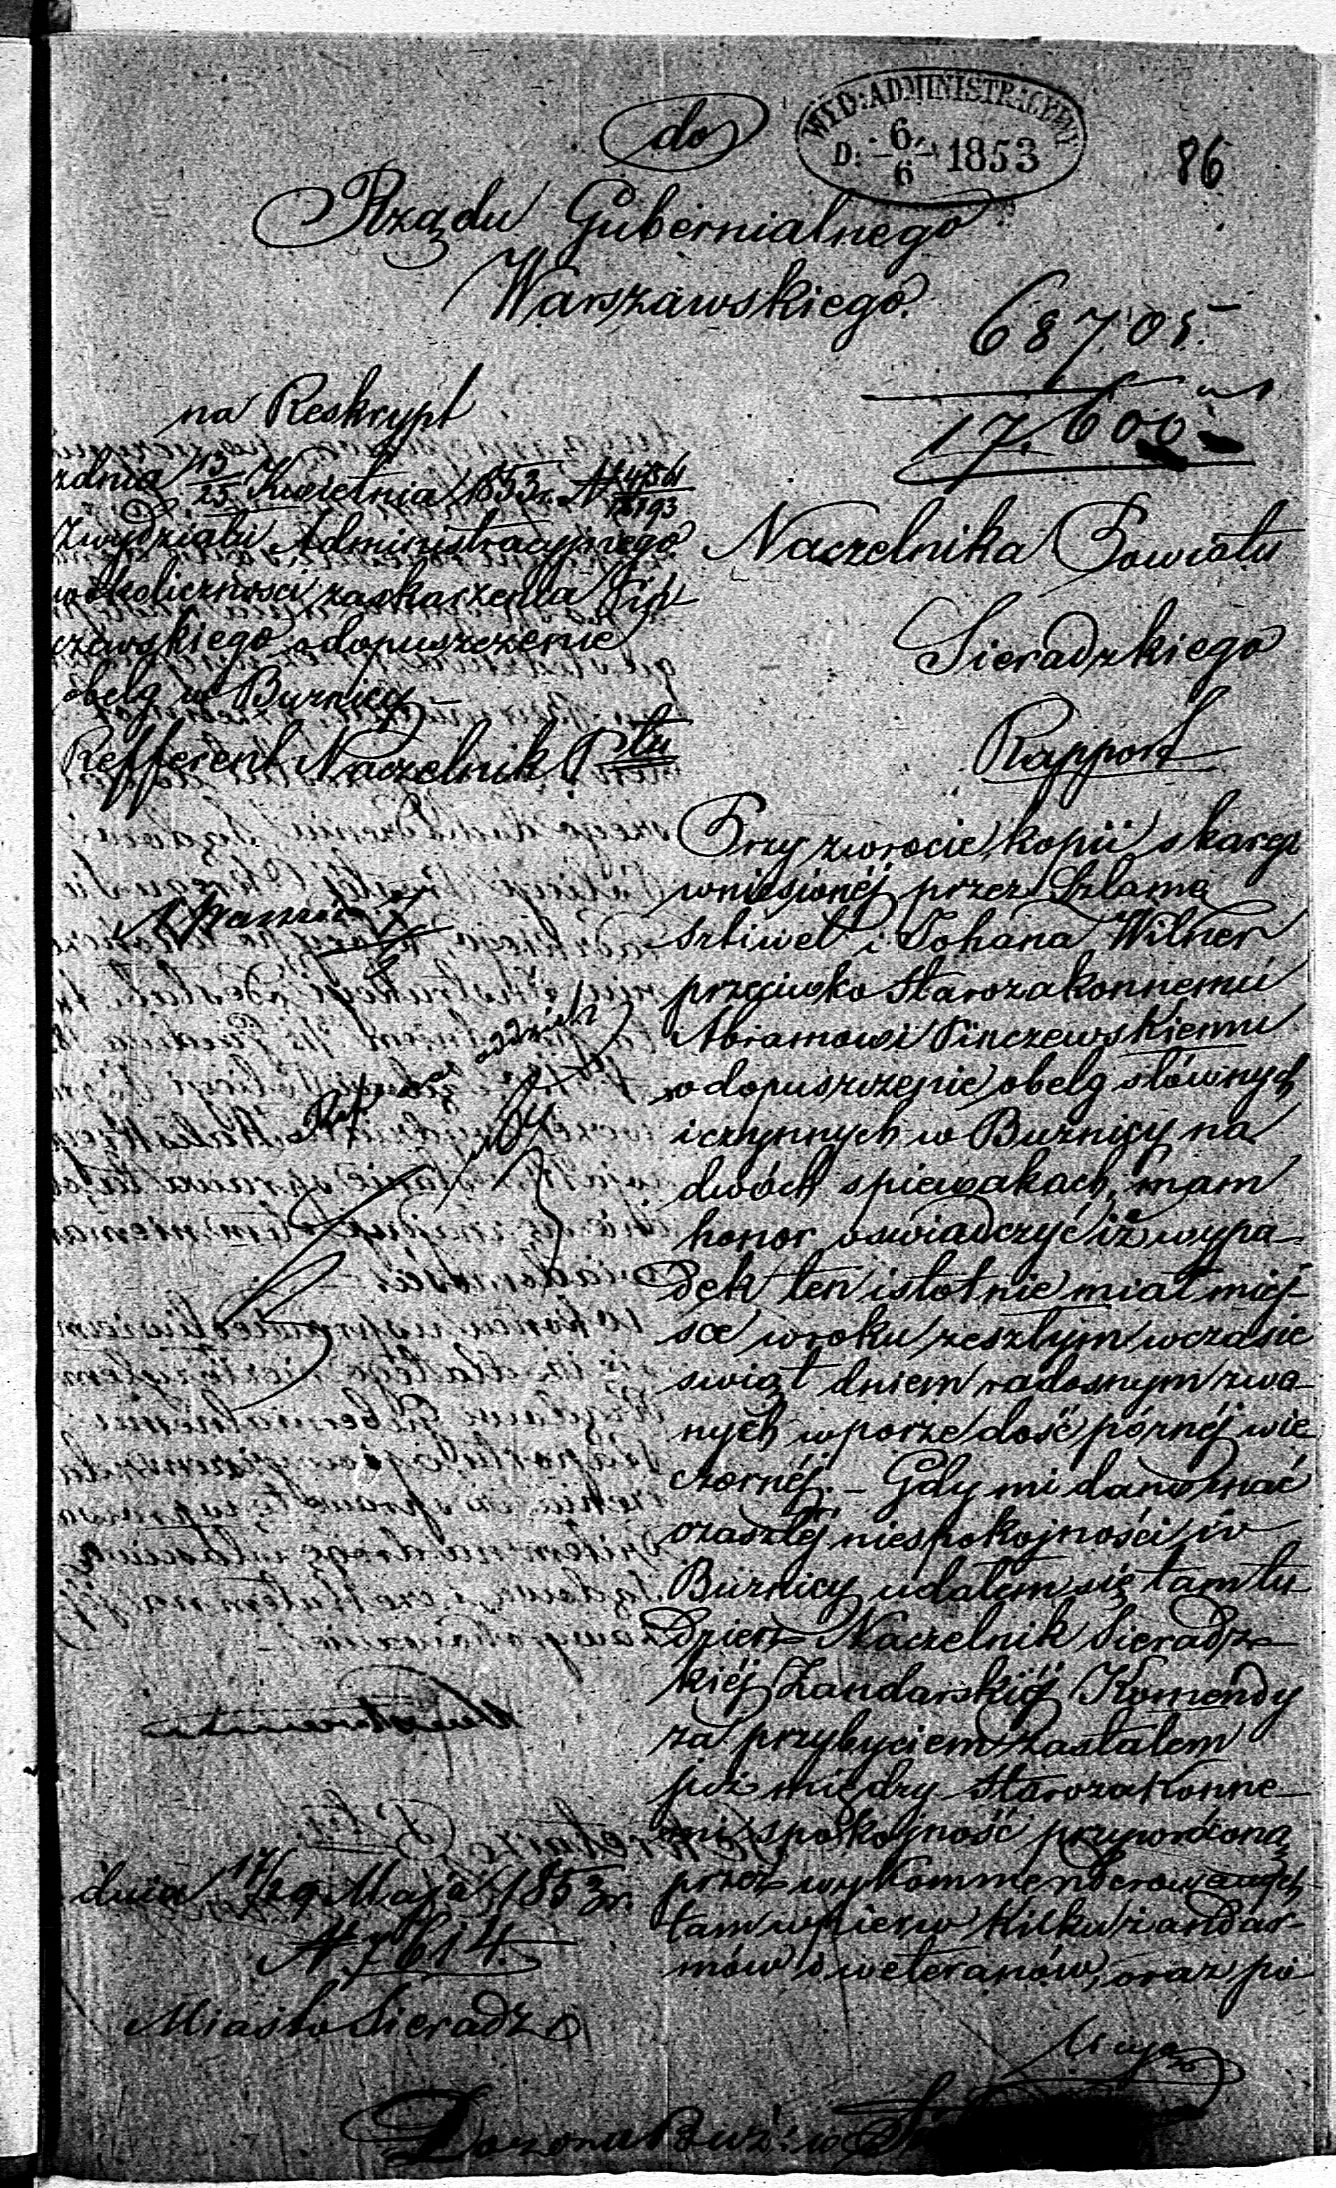 do
WYD: ADMINISTRACYJNY
D: 6/6 1853
86
Rządu Gubernialnego
Warszawskiego.
68705.
17.600
na Reskrypt
z dnia 13/25 Kwietnia 1853 r. N
Zwydziału Administracyjnego
w okoliczności zaskarżenia Pin
czewskiego o dopuszczenie
obelg w Bużnicy
Refferent Naczelnik Ptu
Naczelnika Powiatu
Sieradzkiego
Rapport
Przy zwrocie kopii skargi
wniesionéj przez Szlamę
Sztiwel i Johana Wilner
przeciwko starozakonnemu
Abramowi Pinczewskiemu
o dopuszczenie obelg słównych
i czynnych w Bużnicy na
dwóch spiewakach, mam
honor oswiadczyć iż wypa-
dek ten istotnie miał miéj-
sce w roku zeszłym w czasie
swiąt dniem radosnym zwa-
nych w porze dość póznéj wie-
czornéj. – Gdy mi dano znać
o zaszłéj niespokojności w
Bużnicy udałem się tam tu
dzież Naczelnik Sieradz-
kiéj Żandarskiéj Komendy
za przybyciem zastałem
już między starozakonne-
mi spokojność przywróconą
przez wykommenderowanych
tam wpierw kilku żandar-
mów i weteranów, oraz po
dnia 17/29 Maja 1853 r.
N 7614.
Miasto Sieradz
Dozoru Buż: w